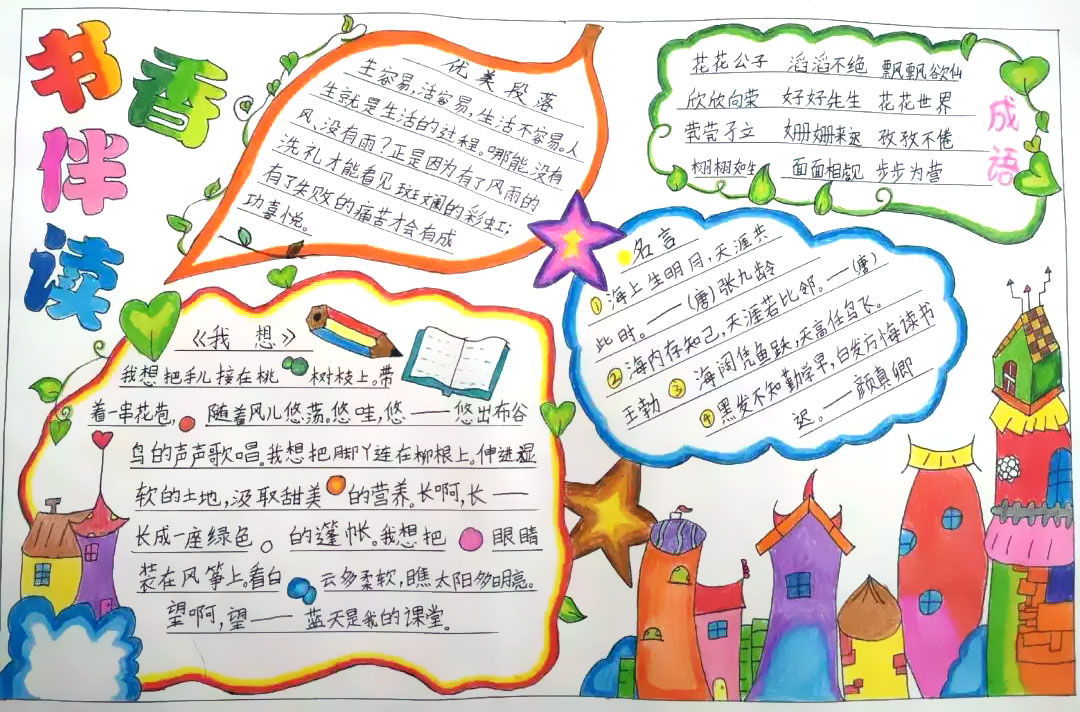 书香
伴
读
优美段落
生容易,活容易,生活不容易。人
生就是生活的过程。哪能没有
风、没有雨?正是因为有了风雨的
洗礼才能看见斑斓的彩虹;
有了失败的痛苦才会有成
功喜悦。
成语
花花公子 滔滔不绝 飘飘欲仙
欣欣向荣 好好先生 花花世界
茕茕孑立 姗姗来迟 孜孜不倦
栩栩如生 面面相觑 步步为营
名言
①海上生明月,天涯共
此时。——(唐)张九龄
②海内存知己,天涯若比邻。——(唐)
王勃 ③海阔凭鱼跃,天高任鸟飞。
④黑发不知勤学早,白发方悔读书
迟。——颜真卿
《我想》
我想把手儿接在桃 树枝上。带
着一串花苞, 随着风儿悠荡。悠哇,悠——悠出布谷
鸟的声声歌唱。我想把脚丫连在柳根上。伸进湿
软的土地,汲取甜美 的营养。长啊,长——
长成一座绿色 的篷帐。我想把 眼睛
装在风筝上。看白 云多柔软,瞧太阳多明亮。
望啊,望——蓝天是我的课堂。